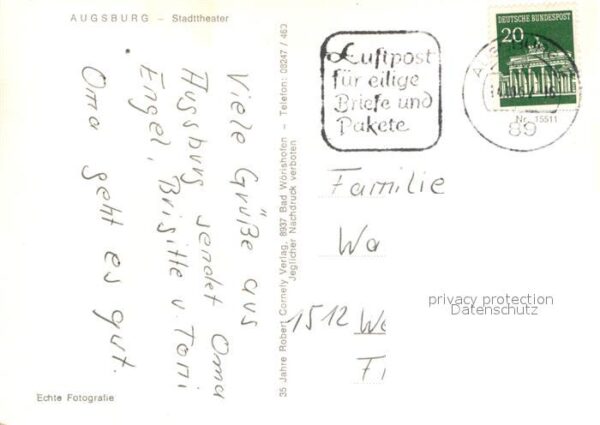 AUGSBURG - Stadttheater
Viele Grüße aus
Augsburg sendet Oma
Engel, Brigitte u. Toni
Oma geht es gut.
Echte Fotografie
35 Jahre Robert Cornely Verlag, 8937 Bad Wörishofen - Telefon: 08247 / 463
Jeglicher Nachdruck verboten
Luftpost
für eilige
Briefe und
Pakete
DEUTSCHE BUNDESPOST
20
89
Nr. 15511
Familie
Wa
1512 We
privacy protection
Datenschutz